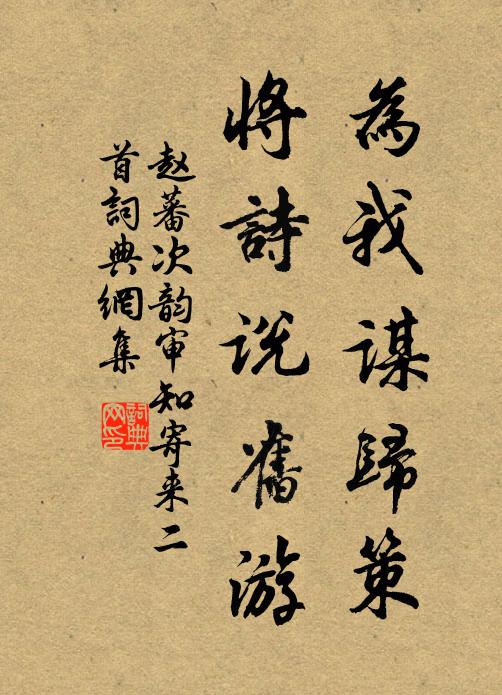 為我謀歸策
將詩説舊游
赵蕃次韵审知寄来二
首詞典網集
詞典
网印